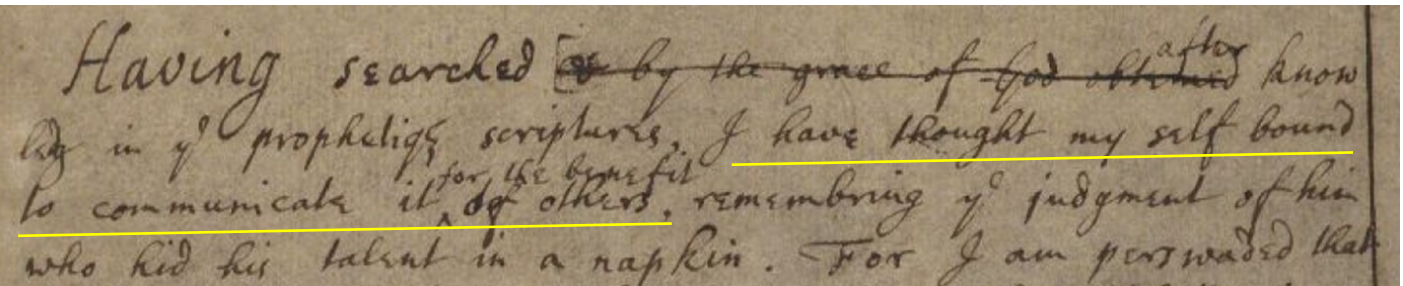 Having searched [& by the grace of God obteined after know
ledg in yᵉ prophetiqꝫ scriptures, I have thought my self bound
to communicate it for the benefit of others, remembring yᵉ judgment of him
who hid his talent in a napkin. For I am perswaded that